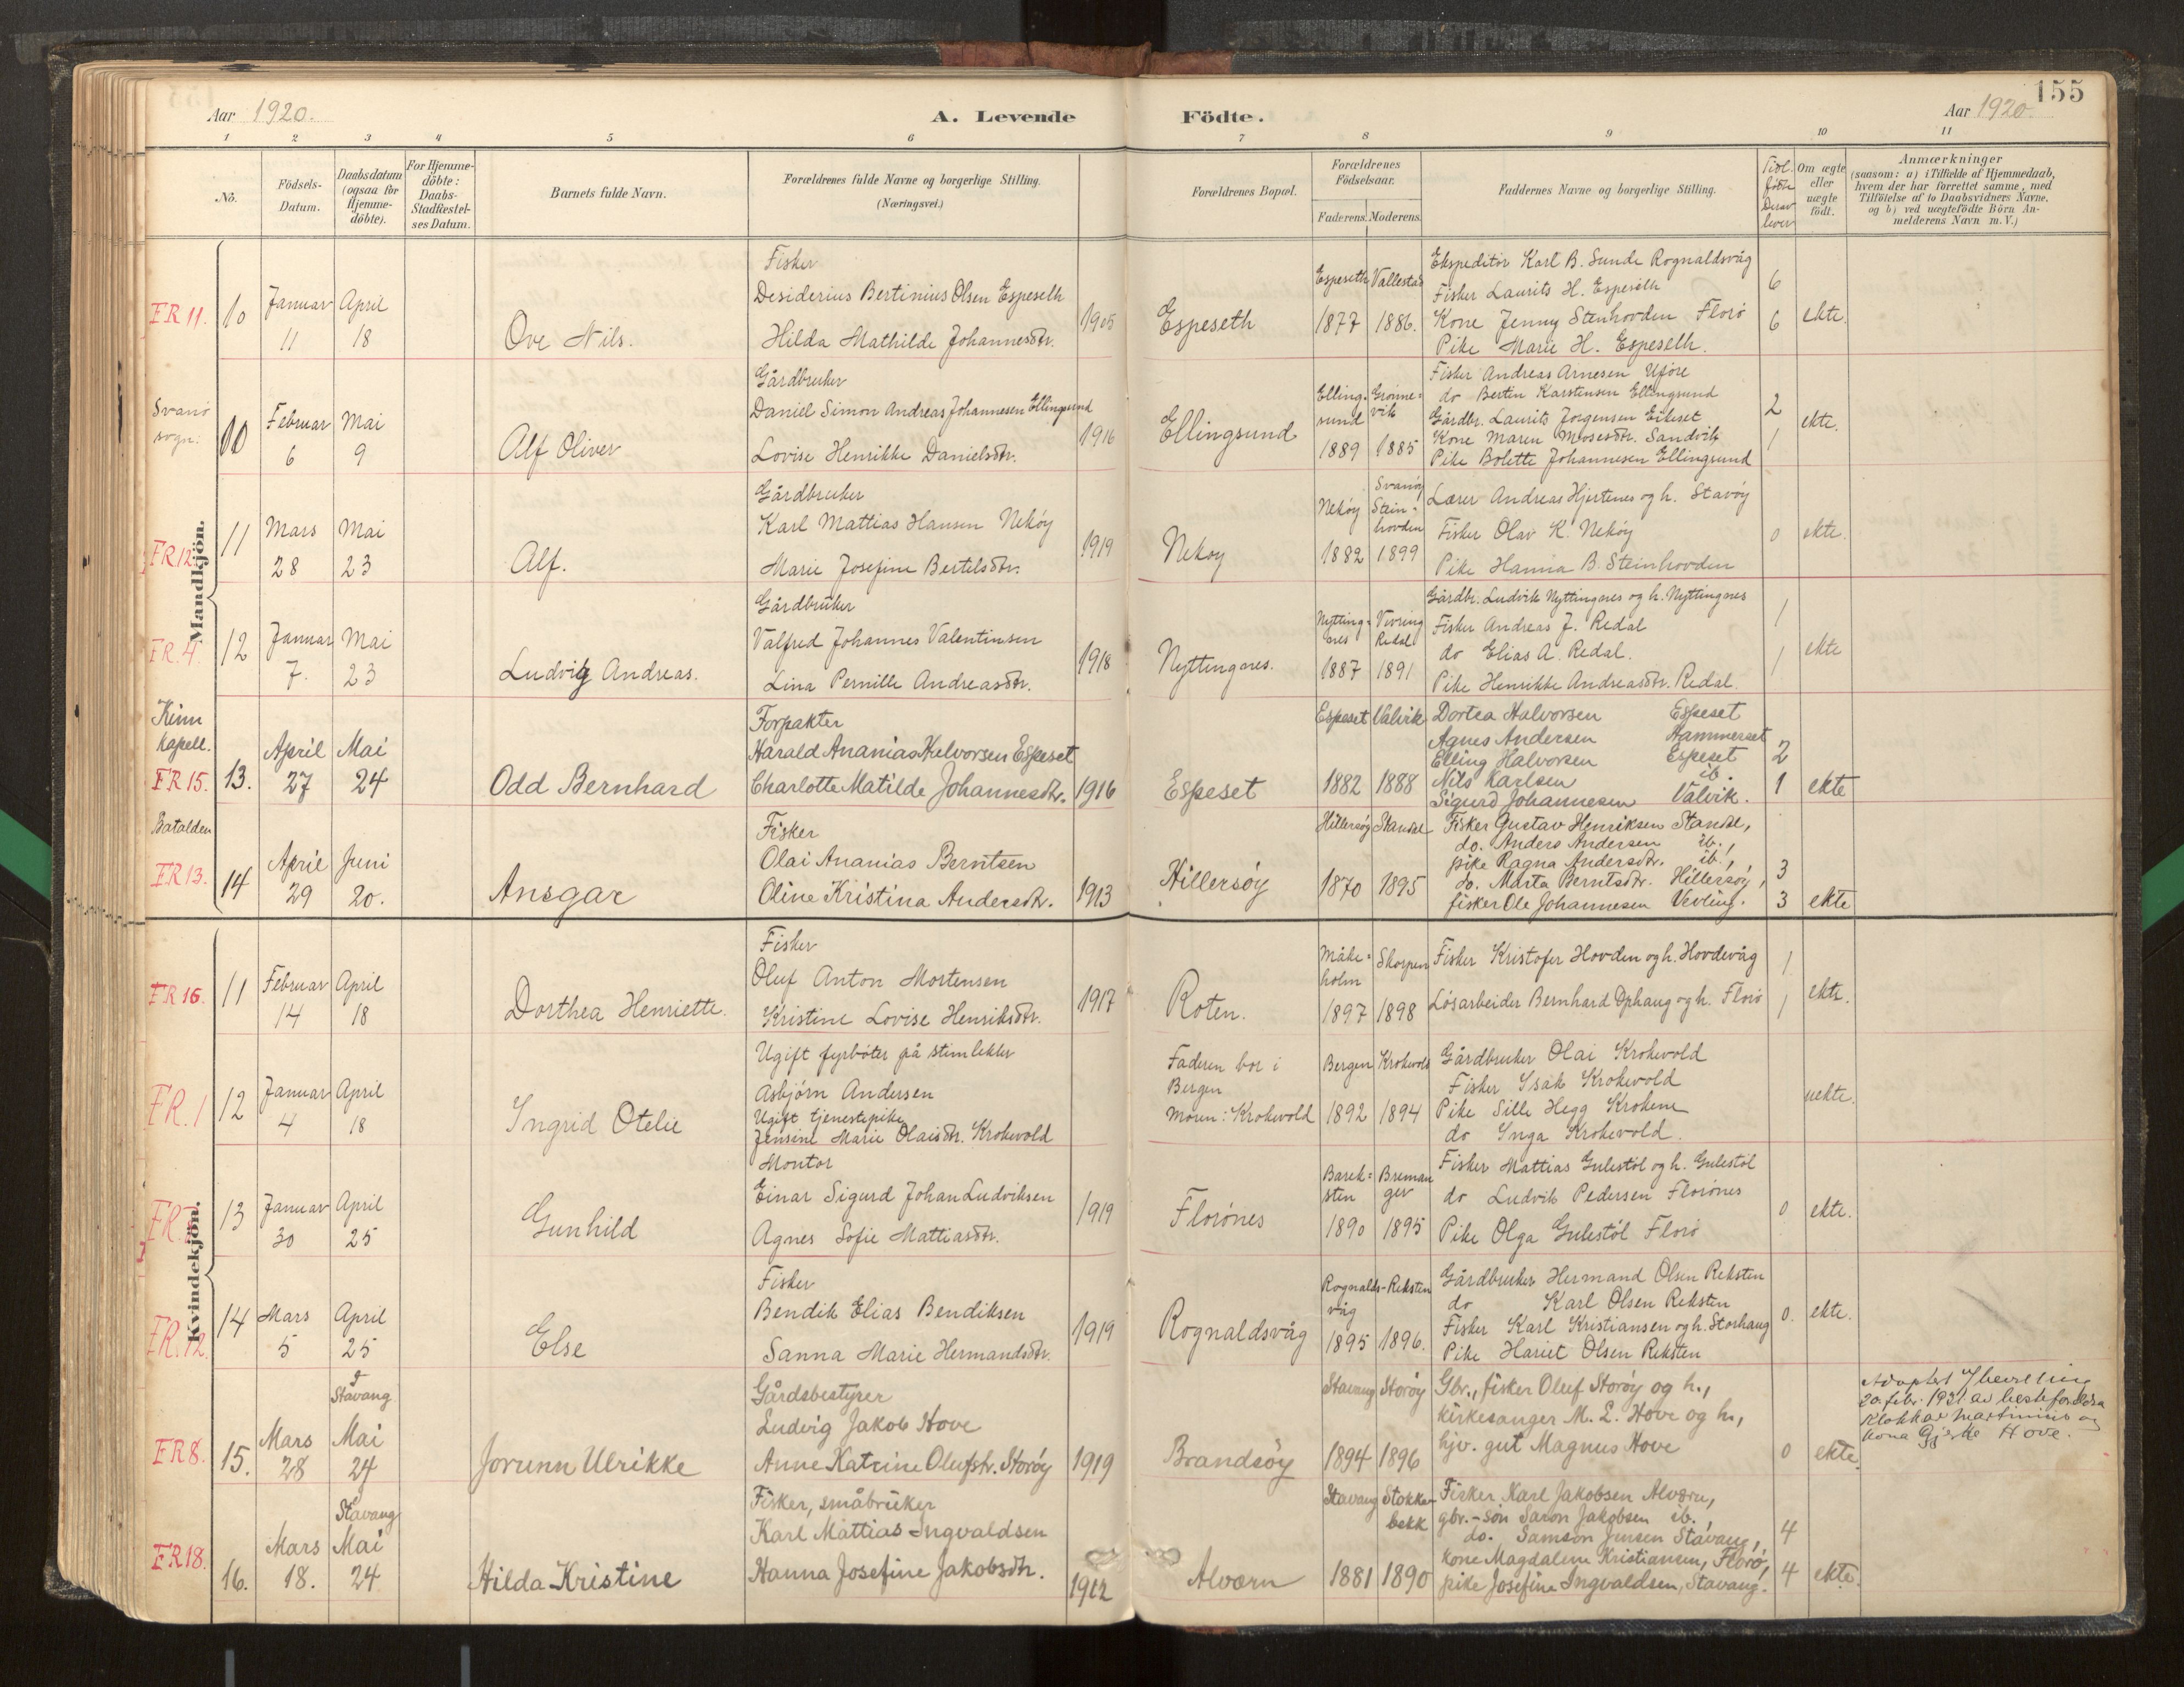 155
Aar 1920. A. Levende Födte. Aar 1920.
1 2 3 4 5 6 7 8 9 10 11
No.
Födsels-
Datum.
Daabsdatum
(ogsaa for
Hjemme-
döbte).
For Hjemme-
döbte:
Daabs-
Stadfæstel-
ses Datum.
Barnets fulde Navn.
Forældrenes fulde Navne og borgerlige Stilling.
(Næringsvei.)
Forældrenes Bopæl.
Forældrenes
Födselsaar.
Faderens. Moderens.
Faddernes Navne og borgerlige Stilling.
Tidl.
födte
Derav
lever
Om ægte
eller
uægte
födt.
Anmærkninger
(saasom: a) i Tilfælde af Hjemmedaab,
hvem der har forrettet samme, med
Tilföielse af to Daabsvidners Navne,
og b) ved uægtefödte Börn An-
melderens Navn m. V.)
Mandkjön.
FR 11.
10
Januar
11
April
18
Ove Nils.
Fisker
Desiderius Bertinius Olsen Espeseth
Hilda Mathilde Johannesdtr.
1905
Espeseth
Espeseth
1877
Vallestad
1886.
Ekspeditör Karl B. Sunde Rognaldsvåg
Fisker Laurits H. Espeseth
Kone Jenny Stenhovden Florö
Pike Marie H. Espeseth.
6
6
ekte.
Svanö
sogn:
10
Februar
6
Mai
9
Alf Oliver
Gårdbruker
Daniel Simon Andreas Johannesen Ellingsund
Lovise Henrikke Danielsdtr.
1916
Ellingsund
Elling-
sund
1889
Grönne-
vik
1885
Fisker Andreas Arnesen Uföre
do Bertin Karstensen Ellingsund
Gårdbr. Laurits Jörgensen Eikeset
Kone Maren Mosesdtr. Sandvik
Pike Bolette Johannesen Ellingsund
2
1
ekte.
FR 12.
11
Mars
28
Mai
23
Alf.
Gårdbruker
Karl Mattias Hansen Neköy
Marie Josefine Bertelsdtr.
1919
Nekoy
Neköy
1882
Svanöy
Stein-
hovden
1899
Lærer Andreas Hjertenes og h. Stavöy
Fisker Olav K. Neköy
Pike Hanna B. Steinhovden
0
ekte.
FR. 4.
12
Januar
7.
Mai
23
Ludvig Andreas.
Gårdbruker
Valfred Johannes Valentinsen
Lina Pernille Andreasdtr.
1918
Nyttingnes.
Nytting-
nes
1887
Vevring
Redal
1891
Gårdbr. Ludvik Nyttingnes og h. Nyttingnes
Fisker Andreas J. Redal
do Elias A. Redal.
Pike Henrikke Andreasdtr. Redal.
1
1
ekte
Kinn
kapell.
FR 15.
13.
April
27
Mai
24
Odd Bernhard
Forpakter
Harald Ananias Halvorsen Espeset
Charlotte Matilde Johannesdtr.
1916
Espeset
Espeset
1882
Valvik
1888
Dortea Halvorsen Espeset
Agnes Andersen Hammerset
Elling Halvorsen Espeset
Nils Karlsen ib.
Sigurd Johannesen Valvik.
2
1
ekte
Batalden
FR 13.
14
April
29
Juni
20.
Ansgar
Fisker
Olai Ananias Berntsen
Oline Kristina Andersdtr.
1913
Hillersöy
Hillersöy
1870
Standal
1895
Fisker Gustav Henriksen Standal,
do. Anders Andersen ib.,
pike Ragna Andersdtr. ib.,
do. Marta Berntsdtr. Hillersöy,
fisker Ole Johannesen Vevling.
3
3
ekte
Kvindekjön.
FR 16.
11
Februar
14
April
18
Dorthea Henriette.
Fisker
Oluf Anton Mortensen
Kristine Lovise Henriksdtr.
1917
Roten.
Måke-
holm
1897
Skorpen
1898
Fisker Kristofer Hovden og h. Hovdevåg
Lösarbeider Bernhard Ophaug og h. Florö
1
1
ekte.
FR. 1
12
Januar
4
April
18
Ingrid Otelie
Ugift fyrböter på stimlekter
Asbjörn Andersen
Ugift tjenestepike
Jensine Marie Olaisdtr. Krokevold
Faderen bor i
Bergen
Moren: Krokevold
Bergen
1892
Krokevold
1894
Gårdbruker Olai Krokevold
Fisker Isak Krokevold
Pike Sille Hegg Krokene
do Inga Krokevold.
uekte.
13
Januar
30
April
25
Gunhild
Montör
Einar Sigurd Johan Ludviksen
Agnes Sofie Mattiasdtr.
1919
Florönes
Barek-
sten
1890
Breman
ger
1895
Fisker Mattias Gulestöl og h. Gulestöl
do Ludvik Pedersen Florönes
Pike Olga Gulestöl Florö
0
ekte.
FR. 12.
14
Mars
5
April
25
Else
Fisker
Bendik Elias Bendiksen
Sanna Marie Hermandsdtr.
1919
Rognaldsvåg
Rognalds-
våg
1895
Reksten
1896.
Gårdbruker Hermand Olsen Reksten
do Karl Olsen Reksten
Fisker Karl Kristiansen og h. Storhaug
Pike Hariet Olsen Reksten
0.
ekte.
FR 8.
15.
Mars
28
I
Stavang
Mai
24
Jorunn Ulrikke
Gårdsbestyrer
Ludvig Jakob Hove
Anne Katrine Olufstr. Storöy
1919
Brandsöy
Stavang
1894
Storöy
1896
Gbr., fisker Oluf Storöy og h.,
kirkesanger M. L. Hove og h.,
hjv. gut Magnus Hove
0
ekte.
Adoptert
20 febr. 1931 av besteforeldra
klokkar Martinius og
kona Gjerte Hove.
FR 18.
16.
Mars
18.
Stavang
Mai
24
Hilda Kristine
Fisker, småbruker
Karl Mattias Ingvaldsen
Hanna Josefine Jakobsdtr.
1912
Alværn
Stavang
1881
Stokke-
bekk
1890
Fisker Karl Jakobsen Alværn,
gbr.-sön Saron Jakobsen ib.,
do. Samson Jensen Stavang,
kone Magdalene Kristiansen, Florö,
pike Josefine Ingvaldsen, Stavang.
4
4
ekte.